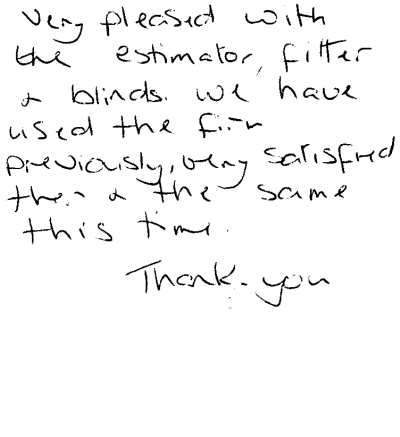 Very pleased with
the estimator, fitter
& blinds. We have
used the firm
previously, very satisfied
then & the same
this time.
Thank-you